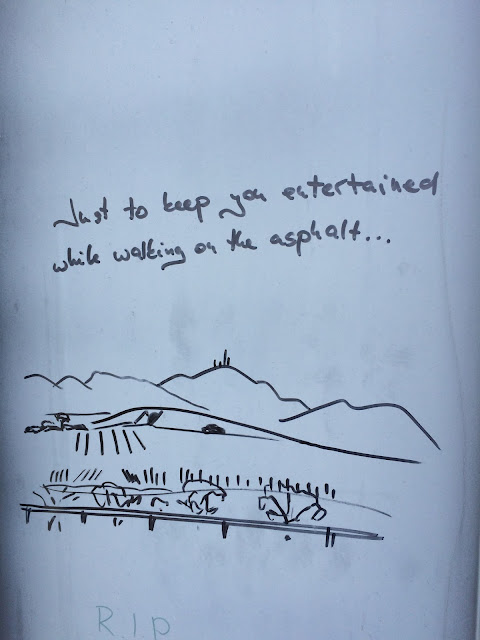 Just to keep you entertained
while walking on the asphalt...
R.I.P